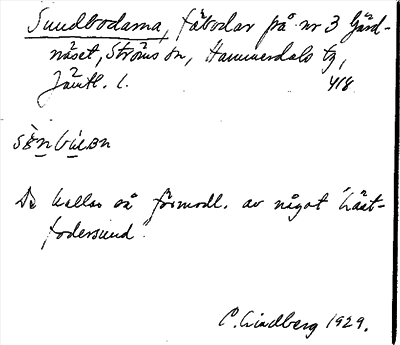 Sundbodarna, fäbodar på nr 3 Gärd-
näset, Ströms sn, Hammerdals tg,
Jämtl. l. 418
De kallas så förmodl. av något "Läst-
fodersund".
C. Lindberg 1929.